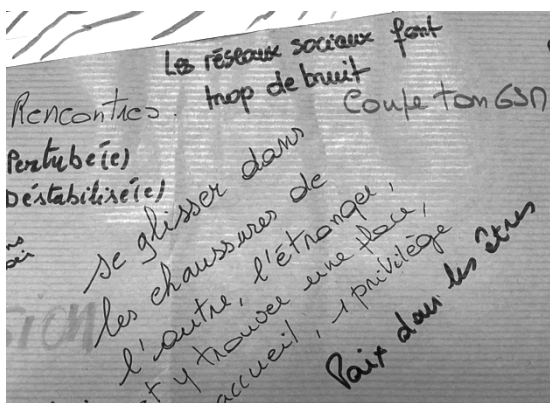 Les réseaux sociaux font
trop de bruit
Rencontres.
Coupe ton GSM
Pertubé(e)
Déstabilisé(e)
se glisser dans
les chaussures de
l'autre, l'étranger,
et y trouver une place,
accueil, 1 privilège
Paix dans les êtres